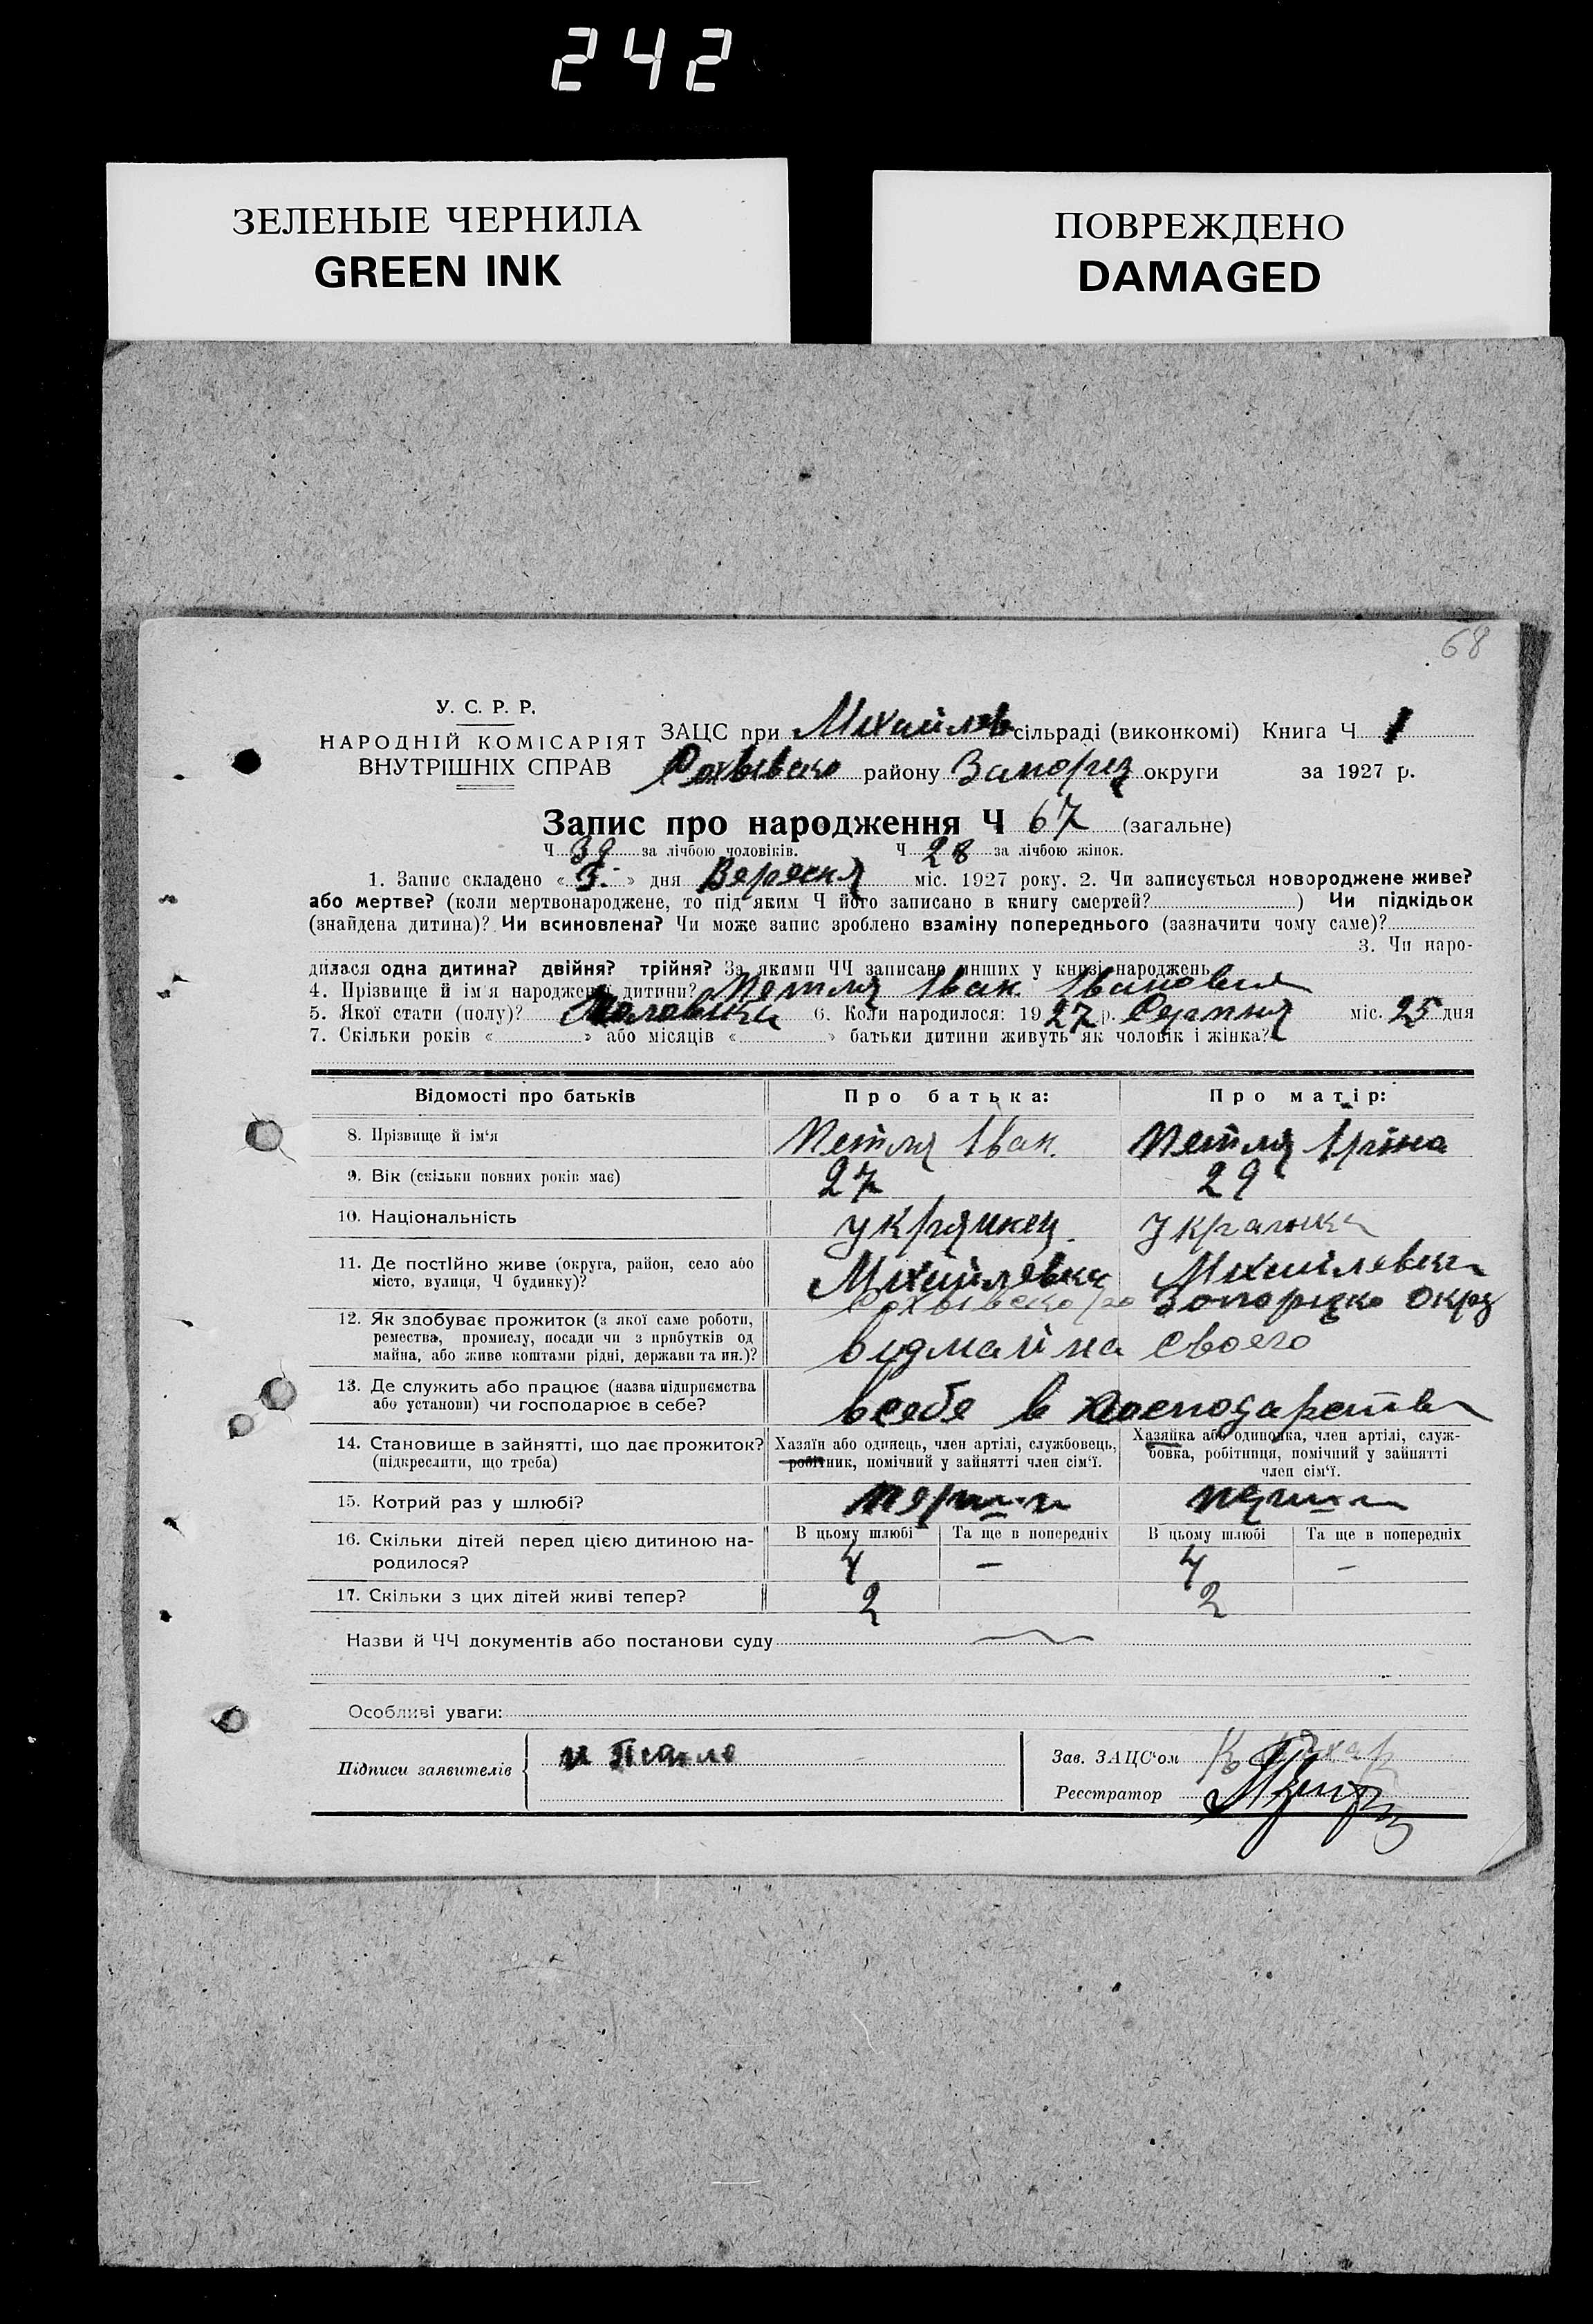 242
ЗЕЛЕНЫЕ ЧЕРНИЛА
GREEN INK
ПОВРЕЖДЕНО
DAMAGED
68
У. С. Р. Р.
НАРОДНІЙ КОМІСАРІЯТ
ВНУТРІШНІХ СПРАВ
ЗАЦС при Михайлів сільраді (виконкомі) Книга Ч 1
району Запоріз округи за 1927 р.
Запис про народження Ч 67 (загальне)
Ч 39 за лічбою чоловіків. Ч 28 за лічбою жінок.
1. Запис складено « » дня Вересня міс. 1927 року. 2. Чи записується новороджене живе?
або мертве? (коли мертвонароджене, то під яким Ч його записано в книгу смертей? ) Чи підкідьок
(знайдена дитина)? Чи всиновлена? Чи може запис зроблено взаміну попереднього (зазначити чому саме)?
3. Чи наро-
дилася одна дитина? двійня? трійня? За якими ЧЧ записано инших у книзі народжень
4. Прізвище й ім'я народженої дитини? Петля Іван Іванович
5. Якої стати (полу)? Чоловіка 6. Коли народилося: 1927 р. Серпня міс. 25 дня
7. Скільки років « » або місяців « » батьки дитини живуть як чоловік і жінка?
Відомості про батьків
Про батька:
Про матір:
8. Прізвище й ім'я Петля Іван. Петля Іріна
9. Вік (скільки повних років має) 27 29
10. Національність українец українка
11. Де постійно живе (округа, район, село або
місто, вулиця, Ч будинку)? Михайлівка Михайлівка
Запорізко Окрз
12. Як здобуває прожиток (з якої саме роботи,
ремества, промислу, посади чи з прибутків од
майна, або живе коштами рідні, держави та ин.)? від майна своего
13. Де служить або працює (назва підприємства
або установи) чи господарює в себе? в себе в господарстві
14. Становище в зайнятті, що дає прожиток?
(підкреслити, що треба)
Хазяїн або одинець, член артілі, службовець,
робітник, помічний у зайнятті член сім'ї.
Хазяйка або одиночка, член артілі, служ-
бовка, робітниця, помічний у зайнятті
член сім'ї.
15. Котрий раз у шлюбі? перший перший
16. Скільки дітей перед цією дитиною на-
родилося?
В цьому шлюбі Та ще в попередніх В цьому шлюбі Та ще в попередніх
4 – 4 –
17. Скільки з цих дітей живі тепер? 2 2
Назви й ЧЧ документів або постанови суду
Особливі уваги:
Підписи заявителів
Зав. ЗАЦС'ом
Реєстратор